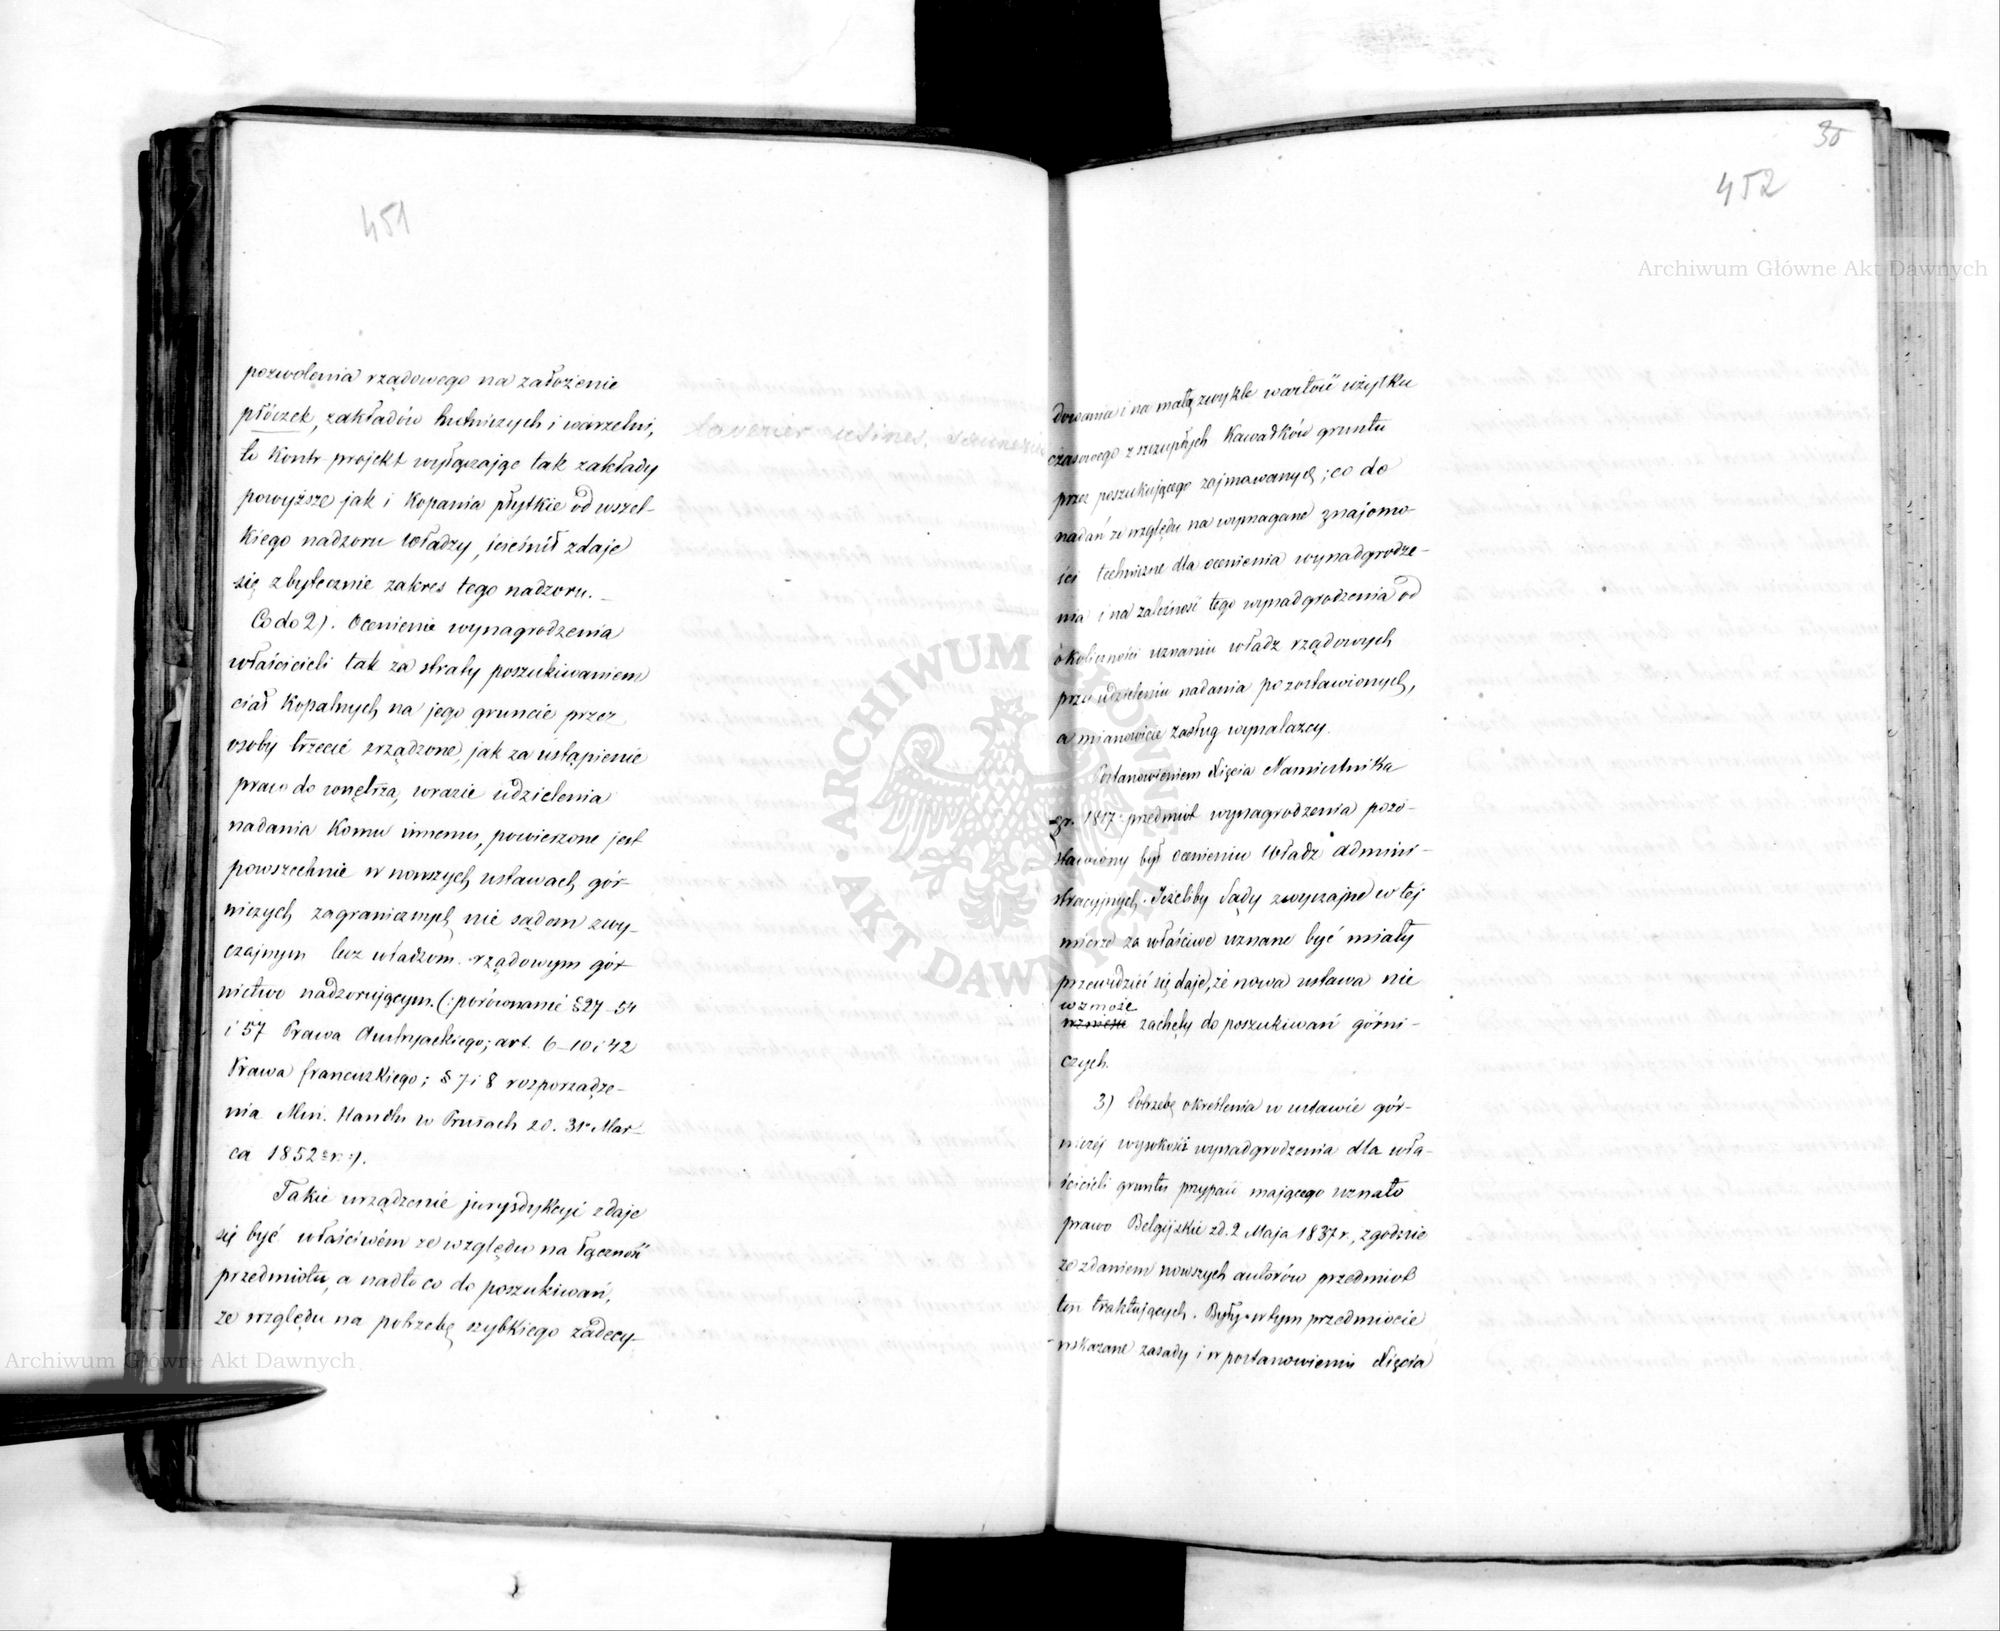 451
pozwolenia rządowego na założenie
płóczek, zakładów hutniczych i warzelni,
to Kontr-projekt wyłączając tak zakłady
powyższe jak i Kopania płytkie od wszel-
Kiego nadzoru Władzy, ścieśnił zdaje
się zbytecznie zakres tego nadzoru. _
Co do 2). Ocenienie wynagrodzenia
właścicieli tak za straty poszukiwaniem
ciał Kopalnych na jego gruncie przez
osoby trzecie zrządzone, jak za ustąpienie
praw do wnętrza, w razie udzielenia
nadania Komu innemu, powierzone jest
powszechnie w nowszych ustawach gór-
niczych zagranicznych nie sądom zwy-
czajnym lecz władzom rządowym gór-
nictwo nadzorującym. (: porównanie § 27-54
i 57 Prawa Austryackiego; art. 6-10 i 42
Prawa francuzkiego; § 7 i 8 rozporządze-
nia Min. Handlu w Prusach z d. 31 Mar-
ca 1852 r :).
Takie urządzenie jurysdykcyi zdaje
się być właściwém ze względu na łączność
przedmiotu, a nadto co do poszukiwań,
ze względu na potrzebę szybkiego zadecy-
30
452
dowania i na małą zwykle wartość użytku
czasowego z szczupłych Kawałków gruntu
przez poszukującego zajmowanych; co do
nadań ze względu na wymagane znajomo-
ści techniczne dla ocenienia wynadgrodze-
nia i na zależność tego wynadgrodzenia od
okoliczności uznaniu władz rządowych
przy udzieleniu nadania pozostawionych,
a mianowicie zasług wynalazcy.
Postanowieniem Xięcia Namiestnika
z r. 1817 przedmiot wynagrodzenia pozo-
stawiony był ocenieniu Władz admini-
stracyjnych. Jeżeliby Sądy zwyczajne w tej
mierze za właściwe uznane być miały
przewidzieć się daje, że nowa ustawa nie
wzmoże
zachęty do poszukiwań górni-
czych.
3) Potrzebę określenia w ustawie gór-
niczéj wysokości wynadgrodzenia dla wła-
ścicieli gruntu przypaść mającego uznało
prawo Belgijskie z d. 2 Maja 1837 r., zgodnie
ze zdaniem nowszych autorów przedmiot
ten traktujących. Były w tym przedmiocie
wskazane zasady i w postanowieniu Xięcia
Archiwum Główne Akt Dawnych
Archiwum Główne Akt Dawnych
ARCHIWUM GŁÓWNE AKT DAWNYCH